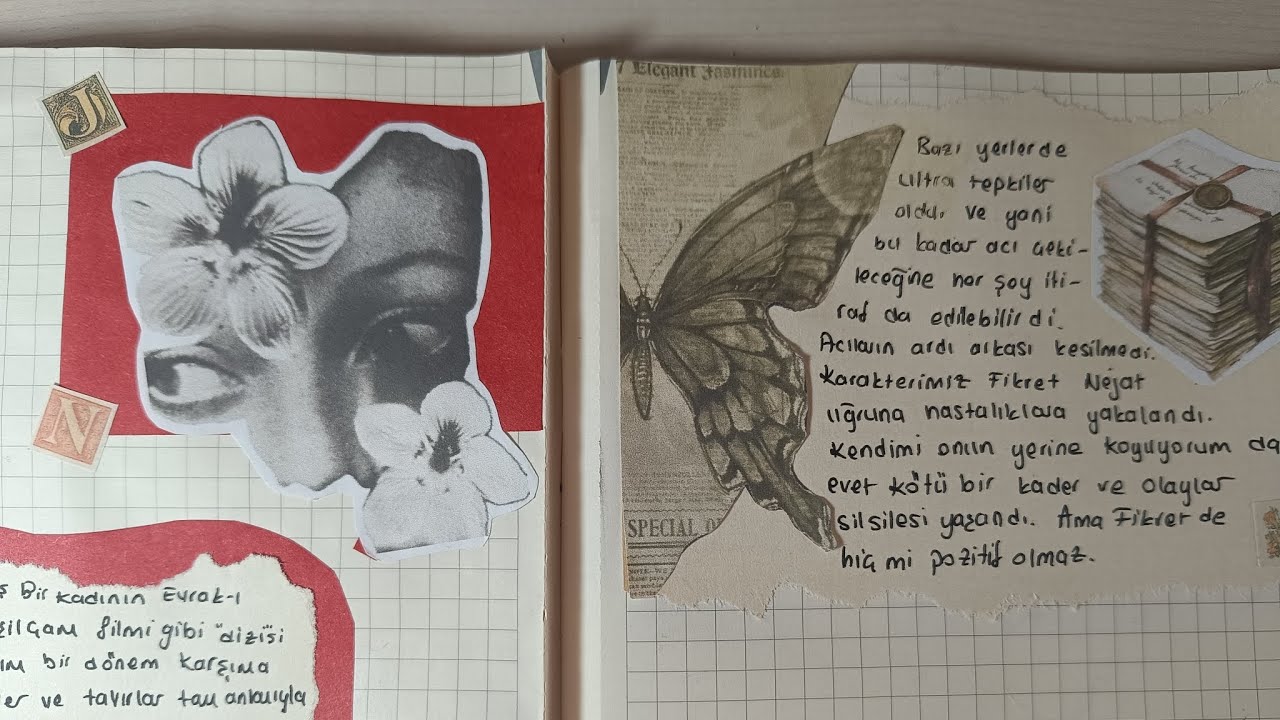 J
N
ş Bir kadının Evrak-ı
şilçam filmi gibi "dizisi
ım bir dönem karşıma
er ve tavırlar tam anlamıyla
Elegant Jasmines
SPECIAL
Bazı yerlerde
ultra tepkiler
oldu ve yani
bu kadar acı çeki-
leceğine her şey iti-
raf da edilebilirdi.
Acıların ardı arkası kesilmedi.
Karakterimiz Fikret Nejat
uğruna hastalıklara yakalandı.
Kendimi onun yerine koyuyorum da
evet kötü bir kader ve olaylar
silsilesi yaşandı. Ama Fikret de
hiç mi pozitif olmaz.